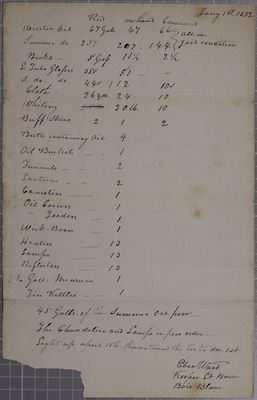 Jany 1st 1832
Recd on hand Consumed
Winter Oil 67 Galls. 47 66
Summer do. 237 207. 144 good condition
Wicks - 5 Gross 11½ 2½
L. Tube Glasses 51 -
S. do. do. 112
Cloth 26 yds. 24 10
Whiting 20 lb 10
Buff Skins 2 1 2
Butts containing Oil 4
Oil Buckets - - 1
Funnels - - 2
Lanterns - - 2
Canisters - 1
Oil Carriers - 1
" Feeders - 1
Wick Boxes - 1
Heaters - 13
Lamps - 13
Reflectors - 13
Gall. Measures 1
Tin Kettles - - 1
45 Galls. of the Summer oil poor
The Chandelier and Lamps in poor order
Light up April 15th discontinued the light dec. 1st
Eber Ward
Keeper Lt House
Bois Blanc